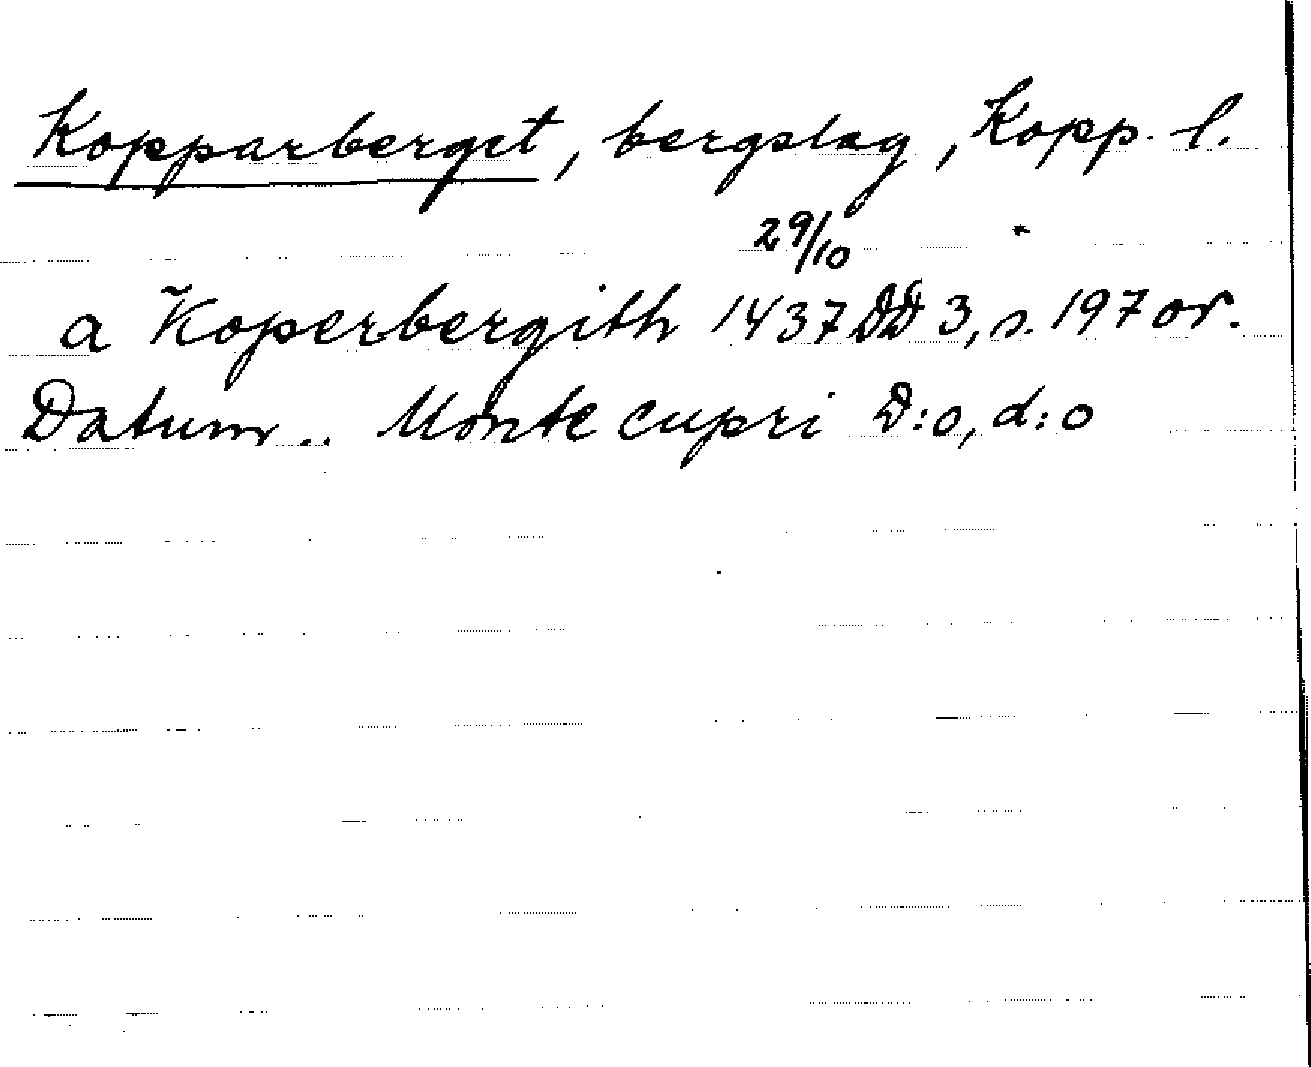 Kopparberget, bergslag, Kopp. l.
29/10
a Koperbergith 1437 DD 3, s. 197 or.
Datum .. Monte cupri D:o, d:o